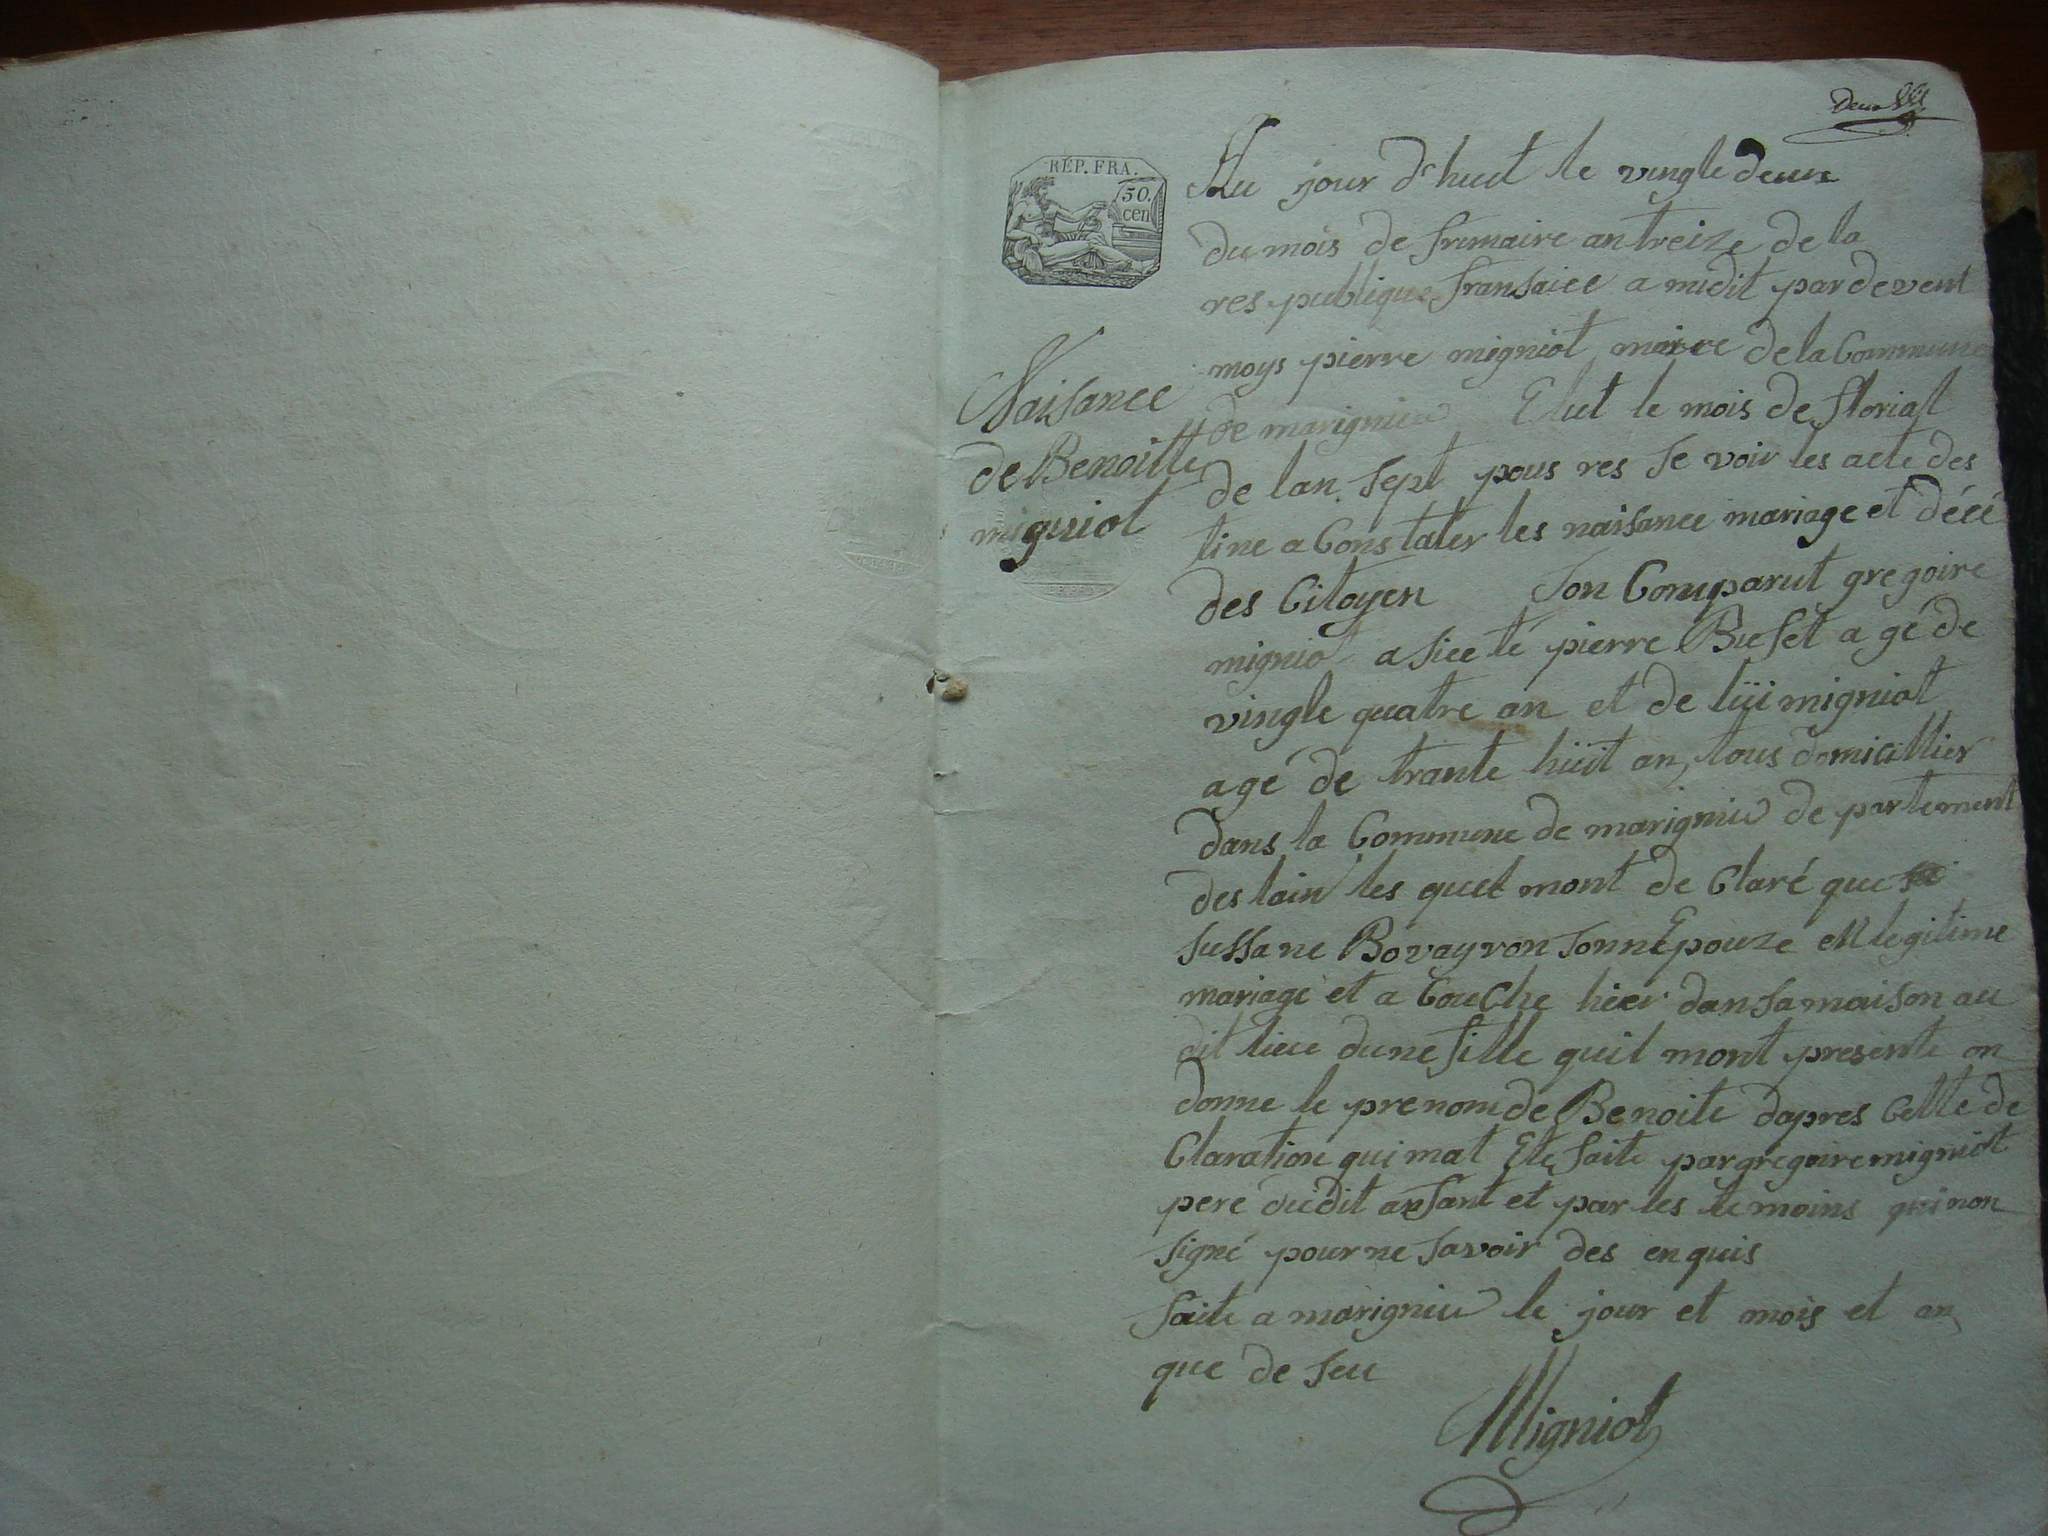 Deux
RÉP. FRA.
50.
cen
Au jour d'huit le vingte deux
du mois de frimaire an treize de la
res publique fransaice a midit par devent
moys pierre migniot maire de la Commune
de marignieu Elut le mois de florial
de lan sept pous res se voir les acte des
tine a Constater les naisance mariage et décé
des Citoyen Son Comparut gregoire
migniot a sicté pierre Buset a gé de
vingte quatre an et de lüi migniot
agé de trante hüit an, tous domicillier
dans la Commune de marignieu de partement
des lain les quel mont de Claré que
sussane Bovayron sonn Epouze en legitime
mariage et a Couche hier dans sa maison au
dit lieu dune fille quil mont presente on
donne le prenom de Benoite dapres Cette de
Claration qui mat Ete faite par gregoire migniot
pere dudit anfant et par les temoins qui non
signé pour ne savoir des enquis
faite a marignieu le jour et mois et an
que de seu
Migniot
Naisance
de Benoitte
migniot